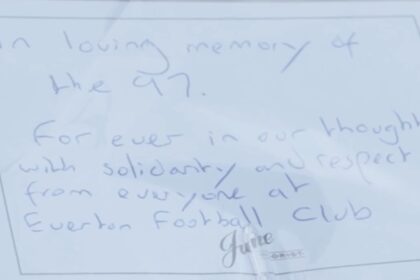 in loving memory of
the 97.
For ever in our thought
with solidarity and respect
from everyone at
Everton Football Club
June